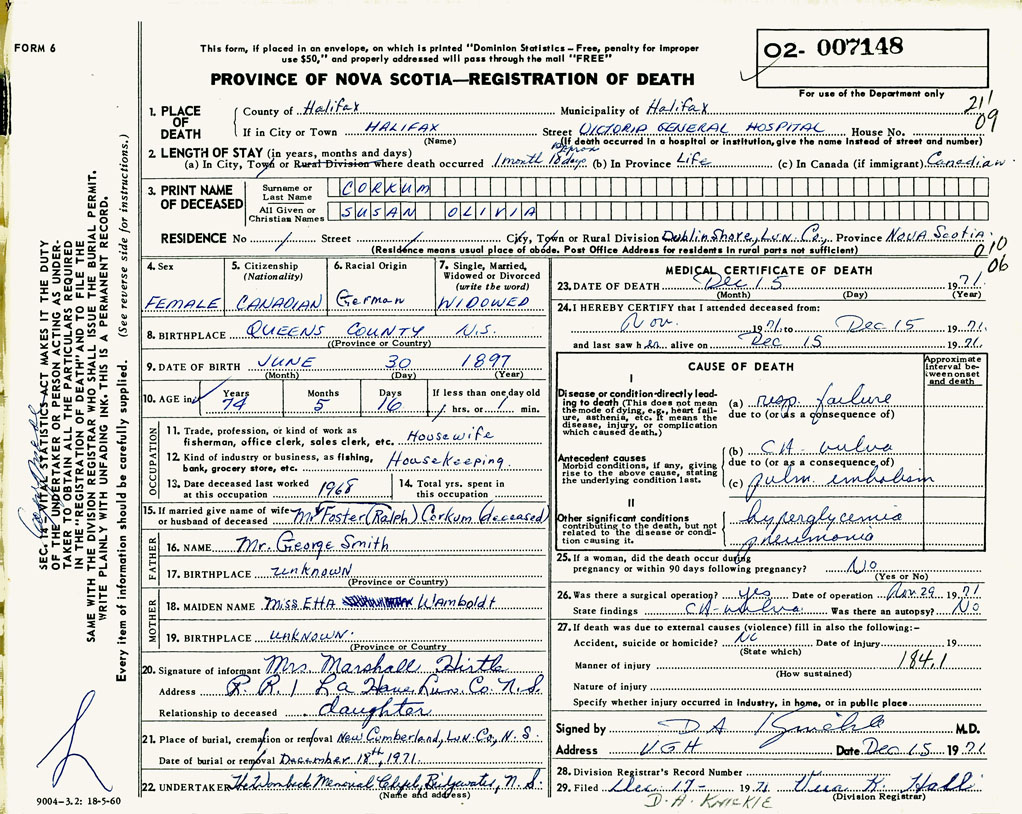 FORM 6
This form, if placed in an envelope, on which is printed "Dominion Statistics – Free, penalty for improper
use $50," and properly addressed will pass through the mail "FREE"
PROVINCE OF NOVA SCOTIA—REGISTRATION OF DEATH
02- 007148
For use of the Department only
211
09
1. PLACE OF DEATH
County of Halifax Municipality of Halifax
If in City or Town HALIFAX Street VICTORIA GENERAL HOSPITAL House No.
(Name) (If death occurred in a hospital or institution, give the name instead of street and number)
2. LENGTH OF STAY (in years, months and days)
(a) In City, Town or Rural Division where death occurred 1 month 18 days approx (b) In Province Life (c) In Canada (if immigrant) Canadian
3. PRINT NAME OF DECEASED
Surname or Last Name CORKUM
All Given or Christian Names SUSAN OLIVIA
RESIDENCE No / Street / City, Town or Rural Division Dublin Shore, Lun. Co., Province NOVA SCOTIA.
(Residence means usual place of abode. Post Office Address for residents in rural parts not sufficient)
010
06
4. Sex FEMALE
5. Citizenship (Nationality) CANADIAN
6. Racial Origin German
7. Single, Married, Widowed or Divorced (write the word) WIDOWED
8. BIRTHPLACE QUEENS COUNTY N.S.
(Province or Country)
9. DATE OF BIRTH JUNE 30 1897
(Month) (Day) (Year)
10. AGE in Years 74 Months 5 Days 16 If less than one day old / hrs. or / min.
OCCUPATION
11. Trade, profession, or kind of work as fisherman, office clerk, sales clerk, etc. Housewife
12. Kind of industry or business, as fishing, bank, grocery store, etc. Housekeeping.
13. Date deceased last worked at this occupation 1968
14. Total yrs. spent in this occupation
15. If married give name of wife or husband of deceased Mr. Foster (Ralph) Corkum (deceased)
FATHER
16. NAME Mr. George Smith
17. BIRTHPLACE unknown
(Province or Country)
MOTHER
18. MAIDEN NAME Miss Etta Wamboldt
19. BIRTHPLACE unknown.
(Province or Country)
20. Signature of informant Mrs Marshall Hirtle
Address R. R. 1 La Have, Lun. Co. N.S.
Relationship to deceased daughter
21. Place of burial, cremation or removal New Cumberland, Lun. Co., N. S.
Date of burial or removal December 18th, 1971
22. UNDERTAKER Memorial Chapel, Bridgewater, N. S.
(Name and address)
9004—3.2: 18-5-60
MEDICAL CERTIFICATE OF DEATH
23. DATE OF DEATH Dec 15 1971
(Month) (Day) (Year)
24. I HEREBY CERTIFY that I attended deceased from:
Nov. 1971 to Dec 15 1971.
and last saw her alive on Dec 15 1971.
CAUSE OF DEATH
Approximate interval between onset and death
I
Disease or condition directly leading to death (This does not mean the mode of dying, e.g., heart failure, asthenia, etc. It means the disease, injury, or complication which caused death.)
(a) resp. failure
due to (or as a consequence of)
Antecedent causes
Morbid conditions, if any, giving rise to the above cause, stating the underlying condition last.
(b) CA vulva
due to (or as a consequence of)
(c) pulm. embolism
II
Other significant conditions
contributing to the death, but not related to the disease or condition causing it.
hyperglycemia
pneumonia
25. If a woman, did the death occur during pregnancy or within 90 days following pregnancy? No
(Yes or No)
26. Was there a surgical operation? yes Date of operation Nov. 29 1971
State findings CA- vulva Was there an autopsy? No
27. If death was due to external causes (violence) fill in also the following:—
Accident, suicide or homicide? No Date of injury 19
(State which)
Manner of injury 184.1
(How sustained)
Nature of injury
Specify whether injury occurred in industry, in home, or in public place
Signed by D A Knickle M.D.
Address V.G.H Date Dec 15 1971
28. Division Registrar's Record Number
29. Filed Dec 17- 1971 K. Hall
(Division Registrar)
D. A. KNICKLE
SEC. 12. VITAL STATISTICS ACT MAKES IT THE DUTY
OF THE UNDERTAKER OR PERSON ACTING AS UNDER-
TAKER TO OBTAIN ALL THE PARTICULARS REQUIRED
IN THE "REGISTRATION OF DEATH" AND TO FILE THE
SAME WITH THE DIVISION REGISTRAR WHO SHALL ISSUE THE BURIAL PERMIT.
WRITE PLAINLY WITH UNFADING INK. THIS IS A PERMANENT RECORD.
Every item of information should be carefully supplied. (See reverse side for instructions.)